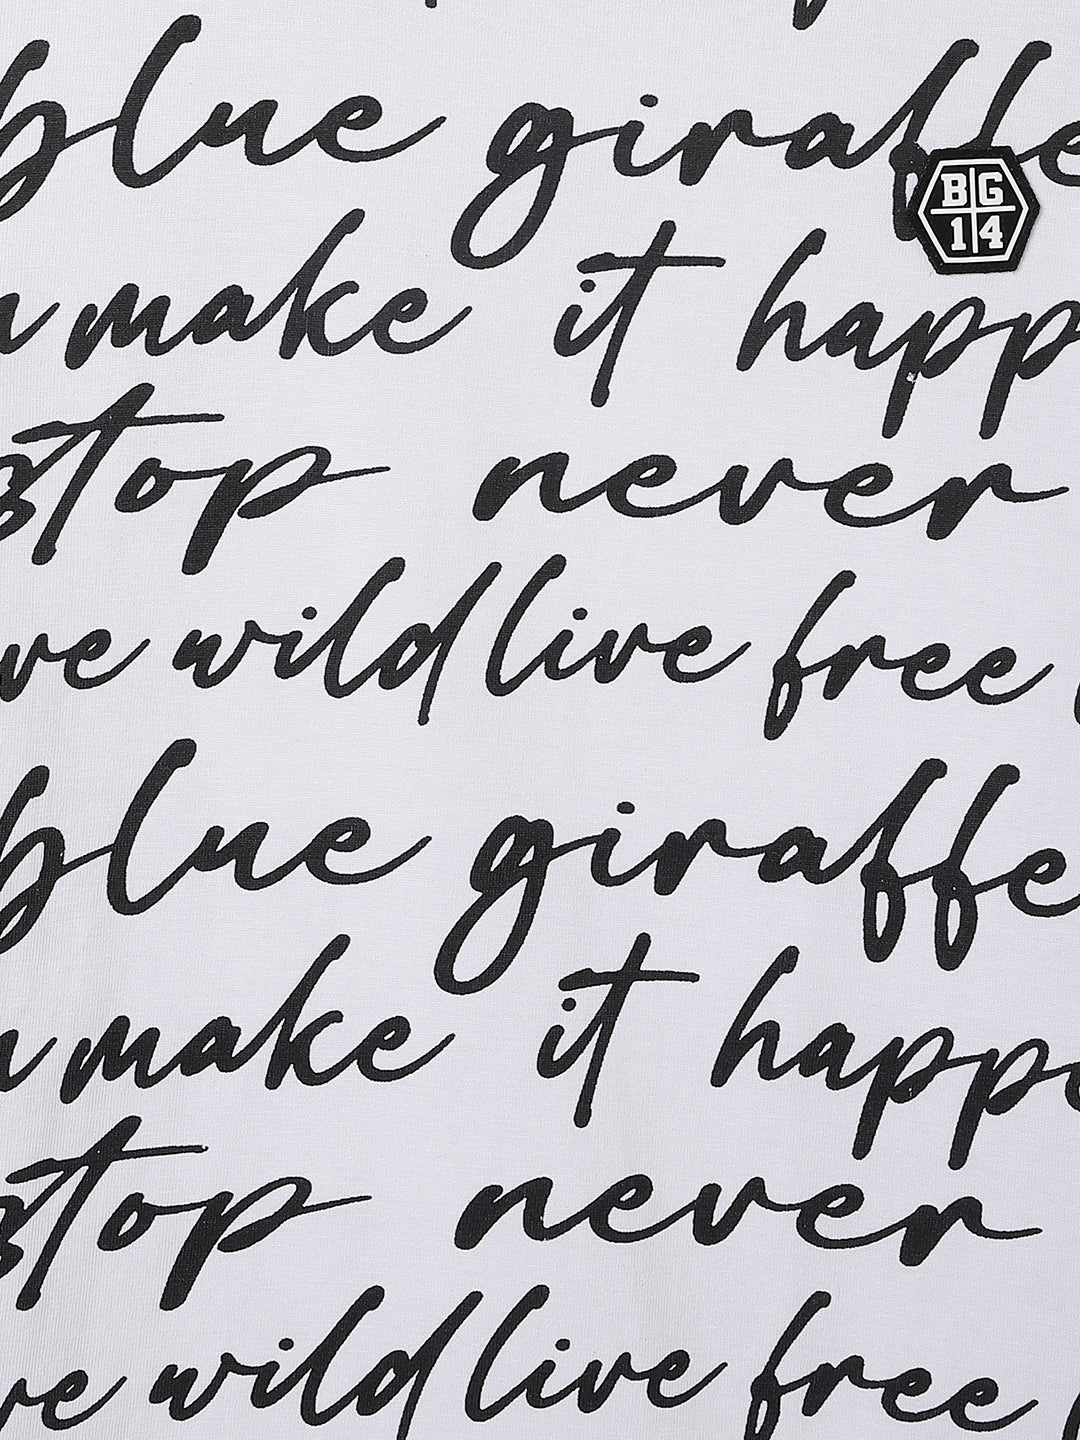 blue giraffe
BG
14
make it happ
stop never
ve wild live free
blue giraffe
make it happe
stop never
ve wild live free